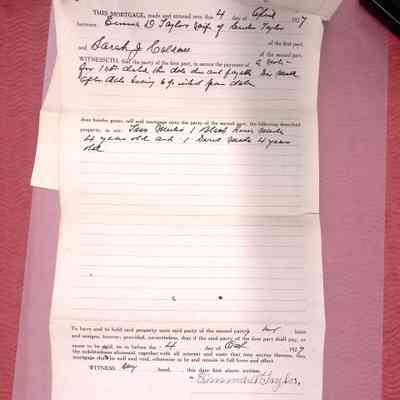 THIS MORTGAGE, made and entered into this 4 day of April 1927
between Emma D Taylor wife of Taylor
of the first part,
and Sarah J
of the second part,
WITNESSETH: that the party of the first part, to secure the payment of a note
for this date due and payable Six Month
after date bearing 6% interest from date
does hereby grant, sell and mortgage unto the party of the second part, the following described
property, to wit: Two Mules 1 Black horse Mule
4 years old and 1 Mule 4 years
old
To have and to hold said property unto said party of the second part, her heirs
and assigns, forever; provided, nevertheless, that if the said party of the first part shall pay, or
cause to be paid, on or before the 4 day of Oct 1927
the indebtedness aforesaid, together with all interest and costs that may accrue thereon, this
mortgage shall be null and void, otherwise to be and remain in full force and effect.
WITNESS my hand, this date first above written.
Emma D Taylor,